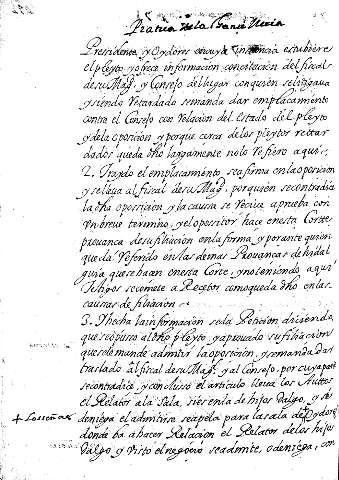 Practica de la Chancilleria
Presidente, y Oydores en cuya instancia estubiere
el pleyto, y ofrece informacion con citacion del fiscal
de su Magd. y Consejo del lugar con quien se litigava
y siendo Retardado se manda dar emplacamiento
contra el Consejo con Relacion del Estado del pleyto
y de la oposicion, y porque cerca de los pleytos retar
dados queda dho largamente no lo Refiero aqui:
2. Traydo el emplacamiento, se afirma en la oposicion
y se lleva al fiscal de su Magd. por quien se contradice
la dha oposicion, y la causa se Recive a prueba con
Vn breve termino, y el opositor hace en esta Corte
provanca de su filiacion en la forma, y por ante quien
queda Referido en las demas Provancas de hidal
guia que se hacen en esta Corte, y no teniendo aqui
testigos se comete a Receptor como queda dho en las
causas de filiacion.
3. Y hecha la informacion se da Peticion diciendo,
que se opuso al dho pleyto, y a provado su filiacion,
que se le mande admitir la oposicion, y se manda dar
traslado al fiscal de su Magd. y al Consejo, por cuya parte
se contradice, y concluso el articulo lleva los Autos
el Relator a la Sala, si es en la de hijos dalgo, y se
+ Los señas
deniega el admitirse se apela para la sala de + Oydores
donde ba a hacer Relacion el Relator de los hijos
dalgo, y visto el negocio se admite, o deniega, con